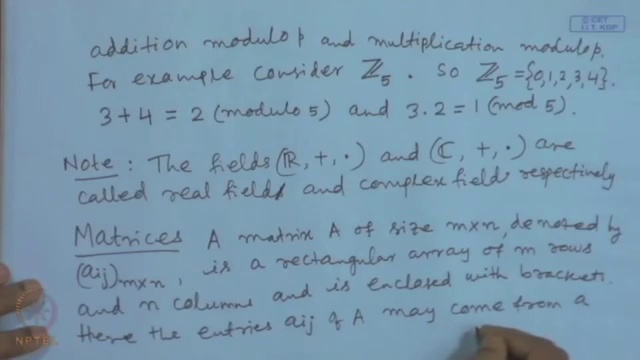 © CET
I.I.T. KGP
addition modulo p and multiplication modulo p.
For example consider ℤ₅. So ℤ₅ = {0,1,2,3,4}.
3+4 = 2 (modulo 5) and 3.2 = 1 (mod 5).
Note : The fields (ℝ, +, ·) and (ℂ, +, ·) are
called real field and complex field respectively
Matrices A matrix A of size m×n, denoted by
(aij)m×n, is a rectangular array of m rows
and n columns and is enclosed with brackets.
Here the entries aij of A may come from a
NPTEL